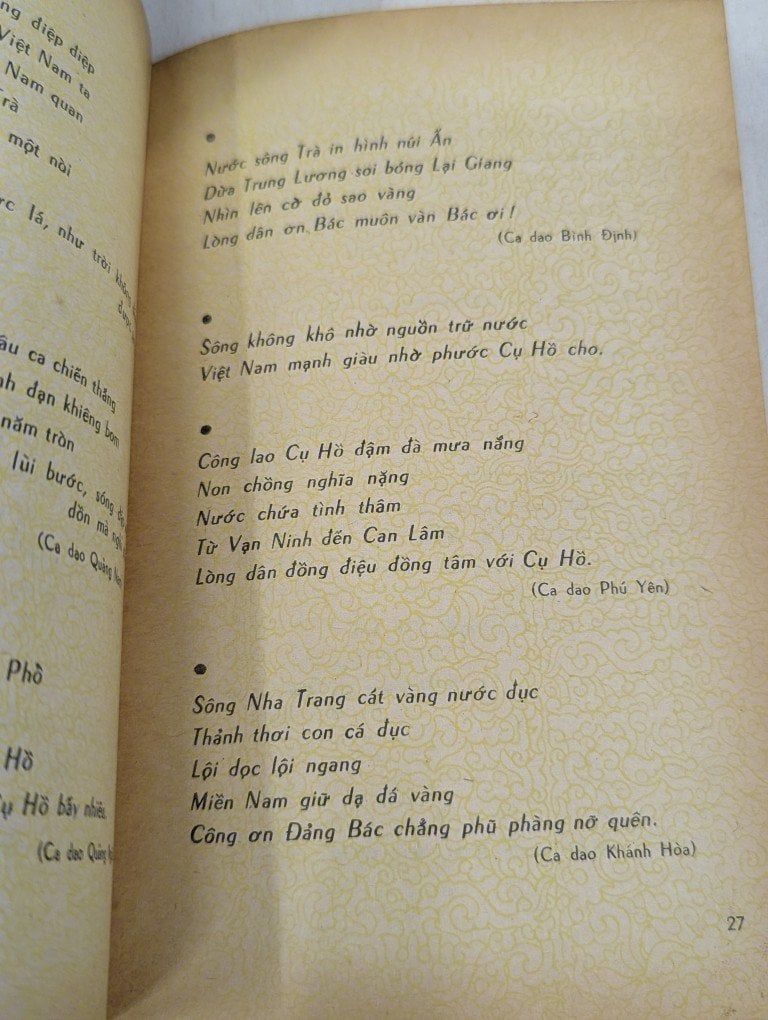 ng điệp điệp
Việt Nam ta
Nam quan
một nòi
lá, như trời không
được
ca chiến thắng
đạn khiêng bom
năm tròn
lùi bước, sóng
dồn mà
(Ca dao Quảng Nam
Phồ
Hồ
Cụ Hồ bấy nhiêu.
(Ca dao Quảng
•
Nước sông Trà in hình núi Ấn
Dừa Trung Lương soi bóng Lại Giang
Nhìn lên cờ đỏ sao vàng
Lòng dân ơn Bác muôn vàn Bác ơi !
(Ca dao Bình Định)
•
Sông không khô nhờ nguồn trữ nước
Việt Nam mạnh giàu nhờ phước Cụ Hồ cho.
•
Công lao Cụ Hồ đậm đà mưa nắng
Non chồng nghĩa nặng
Nước chứa tình thâm
Từ Vạn Ninh đến Can Lâm
Lòng dân đồng điệu đồng tâm với Cụ Hồ.
(Ca dao Phú Yên)
•
Sông Nha Trang cát vàng nước đục
Thảnh thơi con cá đục
Lội dọc lội ngang
Miền Nam giữ dạ đá vàng
Công ơn Đảng Bác chẳng phũ phàng nỡ quên.
(Ca dao Khánh Hòa)
27